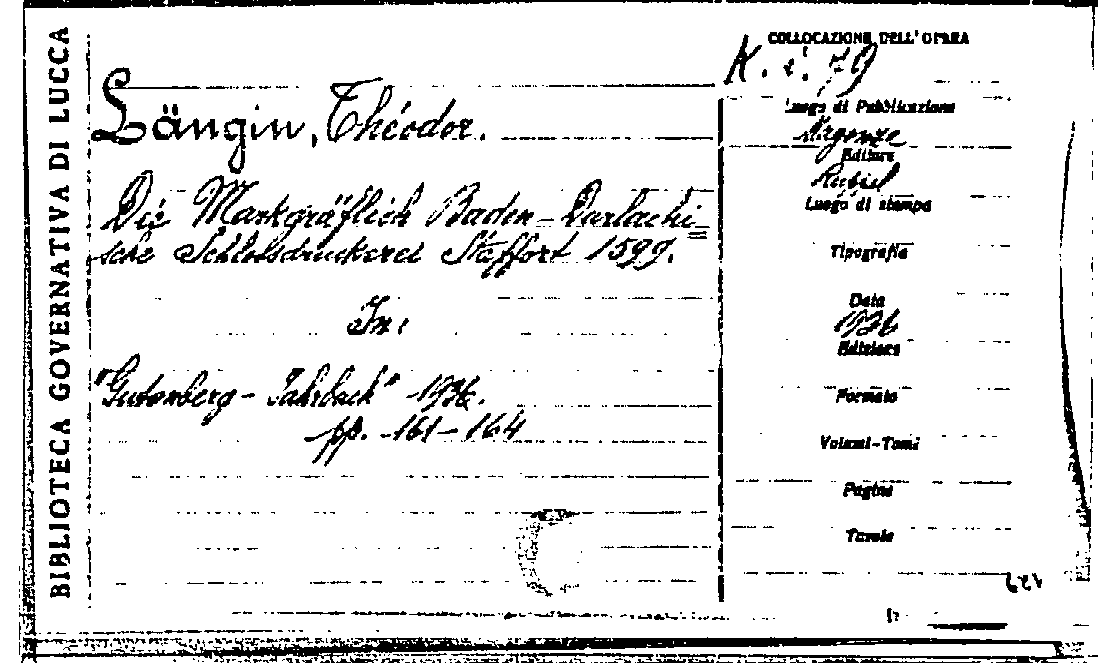 BIBLIOTECA GOVERNATIVA DI LUCCA
Längin, Théodor.
Die Markgräflich Baden-Darlachi=
sche Schlossdruckerei Staffort 1599.
In:
"Gutenberg-Jahrbuch" 1936.
pp. 161-164
COLLOCAZIONE DELL'OPERA
K. i. 79
Luogo di Pubblicazione
Editore
Luogo di stampa
Tipografia
Data
1936
Edizione
Formato
Volumi-Tomi
Pagine
Tavole